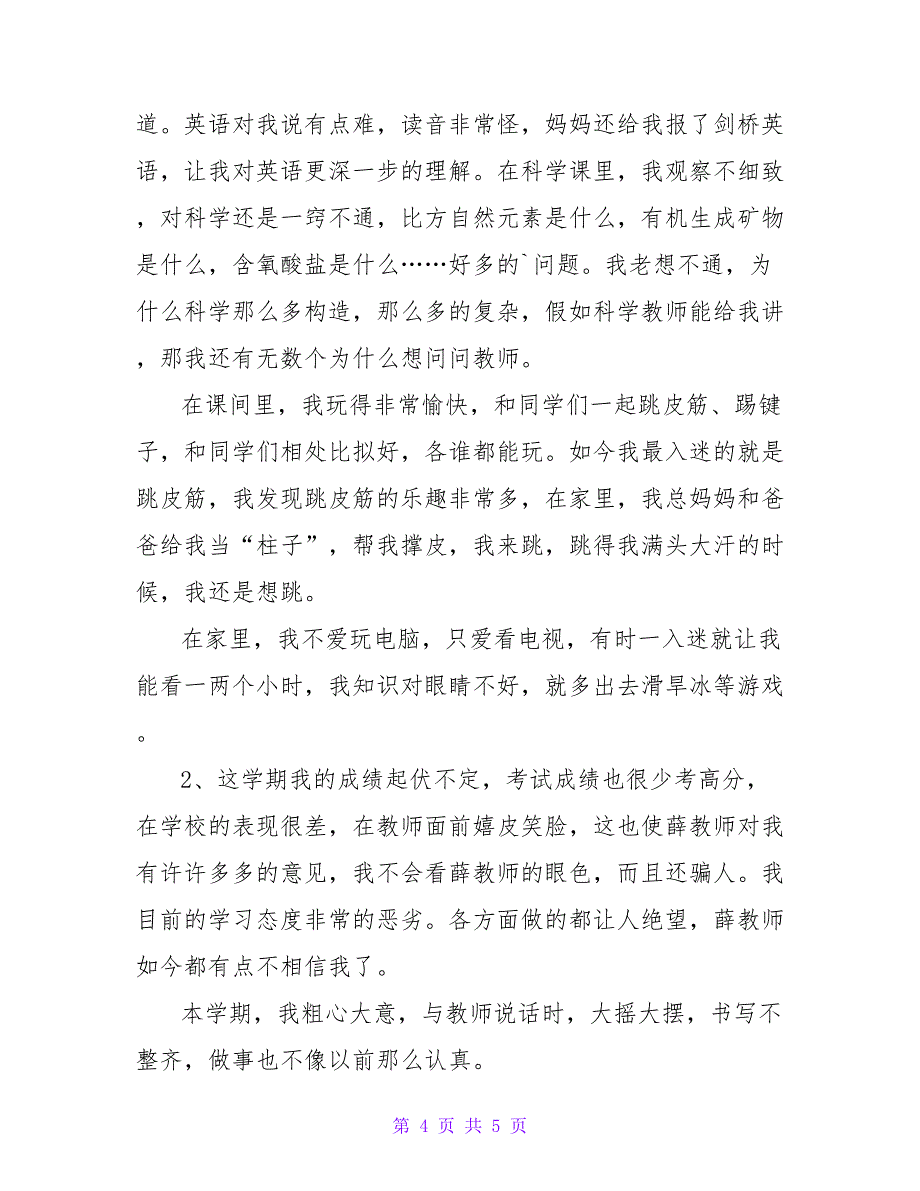 道。英语对我说有点难，读音非常怪，妈妈还给我报了剑桥英
语，让我对英语更深一步的理解。在科学课里，我观察不细致
，对科学还是一窍不通，比方自然元素是什么，有机生成矿物
是什么，含氧酸盐是什么……好多的`问题。我老想不通，为
什么科学那么多构造，那么多的复杂，假如科学教师能给我讲
，那我还有无数个为什么想问问教师。
在课间里，我玩得非常愉快，和同学们一起跳皮筋、踢键
子，和同学们相处比拟好，各谁都能玩。如今我最入迷的就是
跳皮筋，我发现跳皮筋的乐趣非常多，在家里，我总妈妈和爸
爸给我当“柱子”，帮我撑皮，我来跳，跳得我满头大汗的时
候，我还是想跳。
在家里，我不爱玩电脑，只爱看电视，有时一入迷就让我
能看一两个小时，我知识对眼睛不好，就多出去滑旱冰等游戏
。
2、这学期我的成绩起伏不定，考试成绩也很少考高分，
在学校的表现很差，在教师面前嬉皮笑脸，这也使薛教师对我
有许许多多的意见，我不会看薛教师的眼色，而且还骗人。我
目前的学习态度非常的恶劣。各方面做的都让人绝望，薛教师
如今都有点不相信我了。
本学期，我粗心大意，与教师说话时，大摇大摆，书写不
整齐，做事也不像以前那么认真。
第 4 页 共 5 页